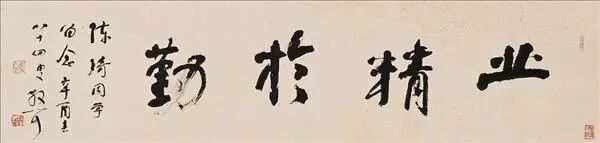 业精於勤
陈琦同学
留念 辛酉春
八十四叟散耳